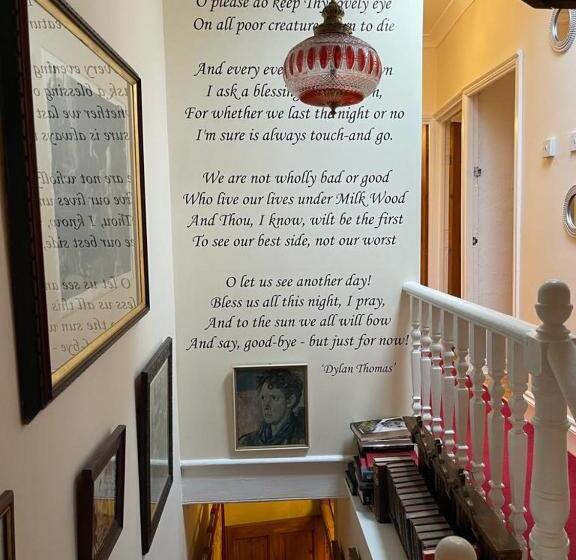 O please do keep Thy lovely eye
On all poor creatures to die
And every
I ask a blessing
For whether we last the night or no
I'm sure is always touch-and go.
We are not wholly bad or good
Who live our lives under Milk Wood
And Thou, I know, wilt be the first
To see our best side, not our worst
O let us see another day!
Bless us all this night, I pray,
And to the sun we all will bow
And say, good-bye - but just for now!
'Dylan Thomas'